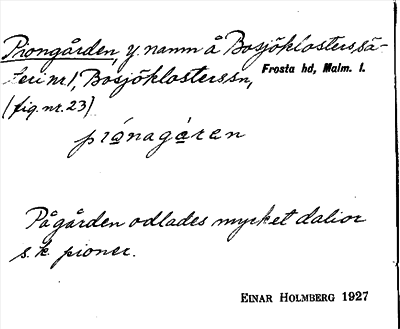 Piongården, y. namn å Bosjöklosters sä-
teri nr 1, Bosjöklosters sn, Frosta hd, Malm. l.
(fig. nr. 23)
piånagåren
På gården odlades mycket dalior
s.k. pioner.
EINAR HOLMBERG 1927